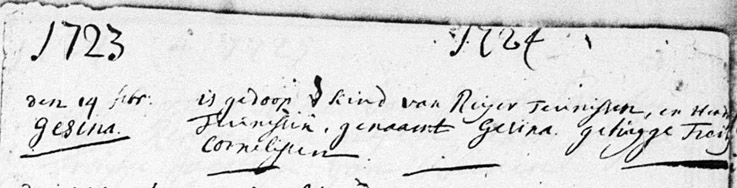 1723 1724
den 14 febr: is gedoop kind van Reijer Teunissen, en
Gesina. Teunissen, genaamt Gesina. getuijge
Cornelissen